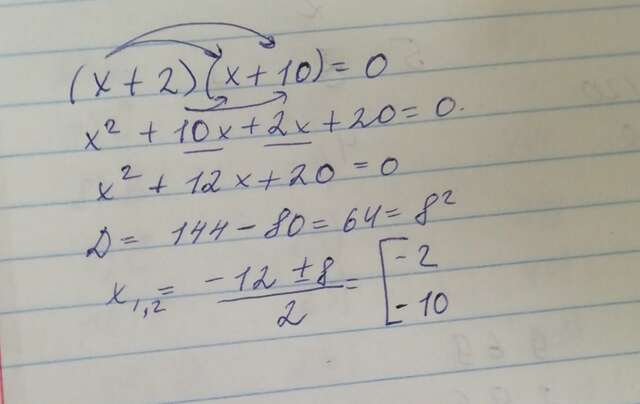 (x + 2)(x + 10) = 0
x² + 10x + 2x + 20 = 0.
x² + 12x + 20 = 0
D = 144 - 80 = 64 = 8²
x₁,₂ = (-12 ± 8)/2 = [-2
-10